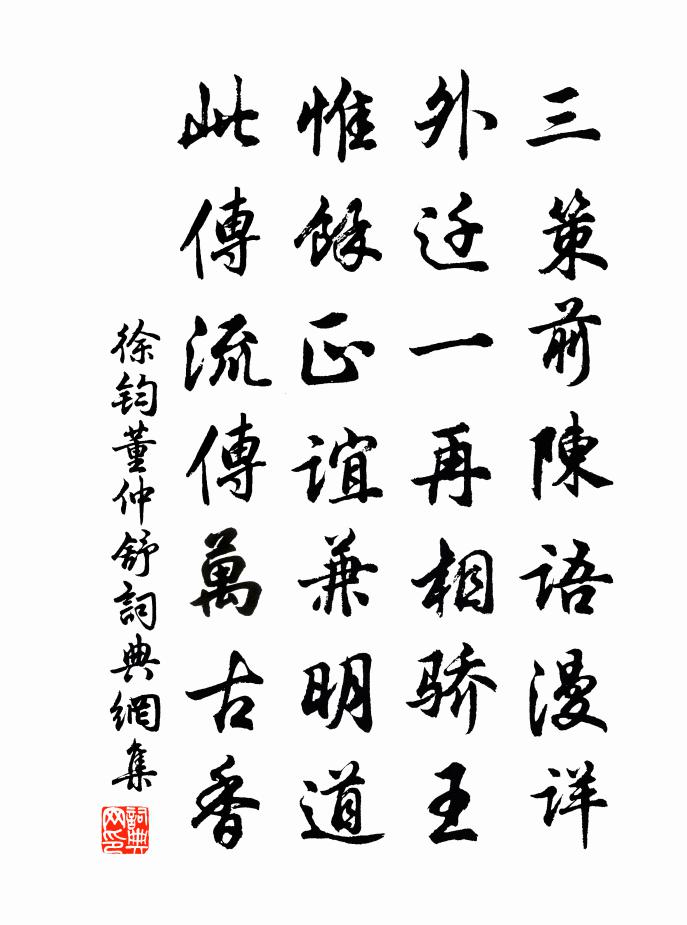 三策前陳语漫详
外迁一再相骄王
惟餘正谊兼明道
此傳流傳萬古香
徐钧董仲舒詞典網集
詞典网印